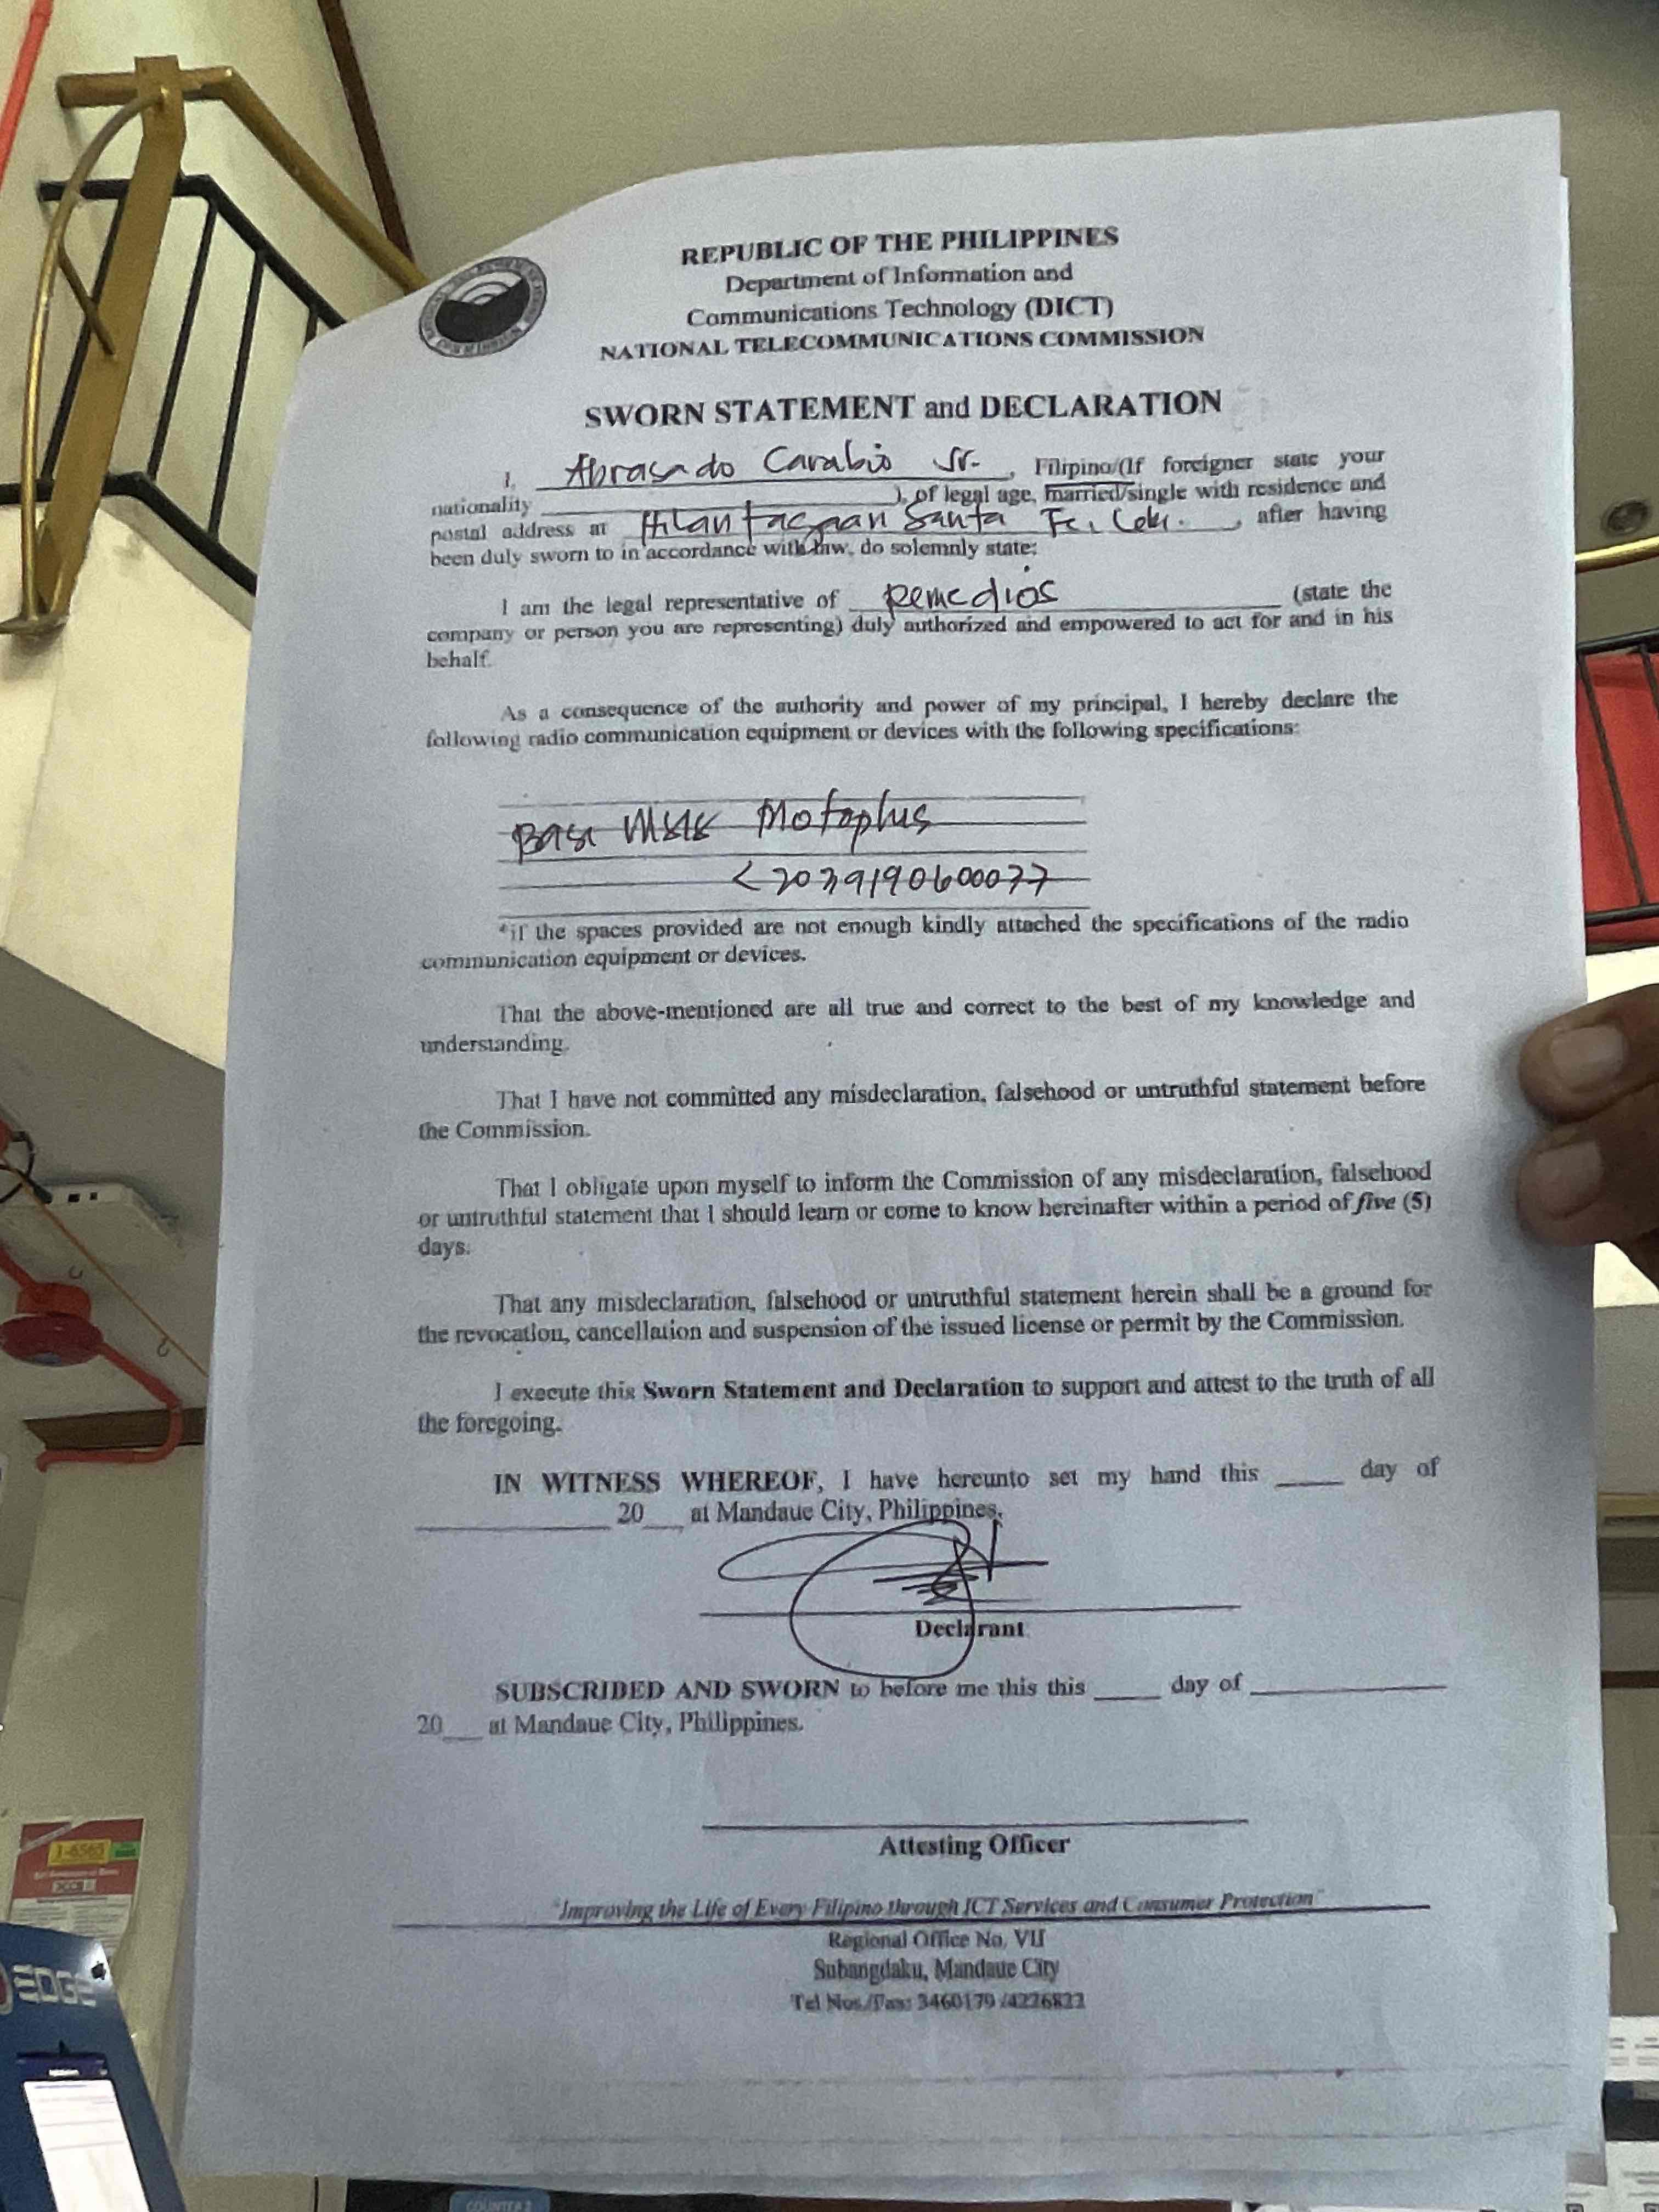 REPUBLIC OF THE PHILIPPINES
Department of Information and
Communications Technology (DICT)
NATIONAL TELECOMMUNICATIONS COMMISSION
SWORN STATEMENT and DECLARATION
I, Abrasado Carabio Jr., Filipino/(If foreigner state your
nationality ____________), of legal age, married/single with residence and
postal address at Hilantagaan Santa Fe, Cebu., after having
been duly sworn to in accordance with law, do solemnly state:
I am the legal representative of Remedios (state the
company or person you are representing) duly authorized and empowered to act for and in his
behalf.
As a consequence of the authority and power of my principal, I hereby declare the
following radio communication equipment or devices with the following specifications:
Base Motoplus
<2039190600077
*if the spaces provided are not enough kindly attached the specifications of the radio
communication equipment or devices.
That the above-mentioned are all true and correct to the best of my knowledge and
understanding.
That I have not committed any misdeclaration, falsehood or untruthful statement before
the Commission.
That I obligate upon myself to inform the Commission of any misdeclaration, falsehood
or untruthful statement that I should learn or come to know hereinafter within a period of five (5)
days.
That any misdeclaration, falsehood or untruthful statement herein shall be a ground for
the revocation, cancellation and suspension of the issued license or permit by the Commission.
I execute this Sworn Statement and Declaration to support and attest to the truth of all
the foregoing.
IN WITNESS WHEREOF, I have hereunto set my hand this _____ day of
____________ 20___ at Mandaue City, Philippines.
Declarant
SUBSCRIBED AND SWORN to before me this this _____ day of ____________
20___ at Mandaue City, Philippines.
Attesting Officer
"Improving the Life of Every Filipino through ICT Services and Consumer Protection"
Regional Office No. VII
Subangdaku, Mandaue City
Tel Nos./Fax: 3460179 /4226822
1-6565
EDGE
COUNTER 2